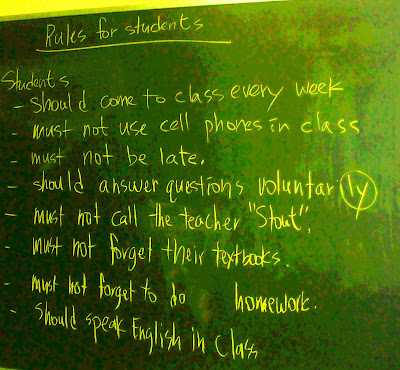 Rules for students
Students
- should come to class every week
- must not use cell phones in class
- must not be late.
- should answer questions voluntarily
- must not call the teacher "Stout".
- must not forget their textbooks.
- must not forget to do homework.
- should speak English in Class